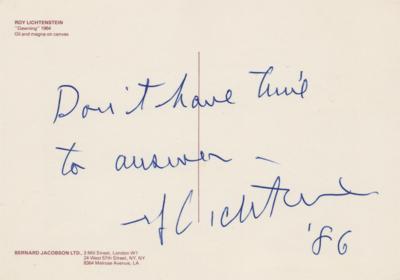 ROY LICHTENSTEIN
"Dawning" 1964
Oil and magna on canvas
Don't have time
to answer –
rf Lichtenstein
'86
BERNARD JACOBSON LTD., 2 Mill Street, London W1
24 West 57th Street, NY, NY
8364 Melrose Avenue, LA